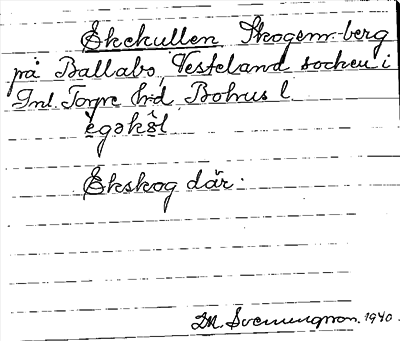 Ekekullen Skogem. berg
på Ballabo, Vesteland socken i
Inl. Torpe hd, Bohus l.
ègəkŏ̂l
Ekskog där.
M. Svenungson. 1940.